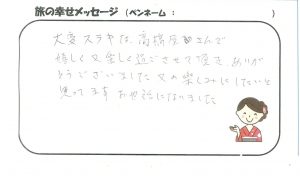 旅の幸せメッセージ（ペンネーム：　　　　　）
大変ステキな高橋屋さんで
嬉しく又楽しく過ごさせて頂き、ありが
とうございました 又の楽しみにしたいと
思ってます お世話になりました